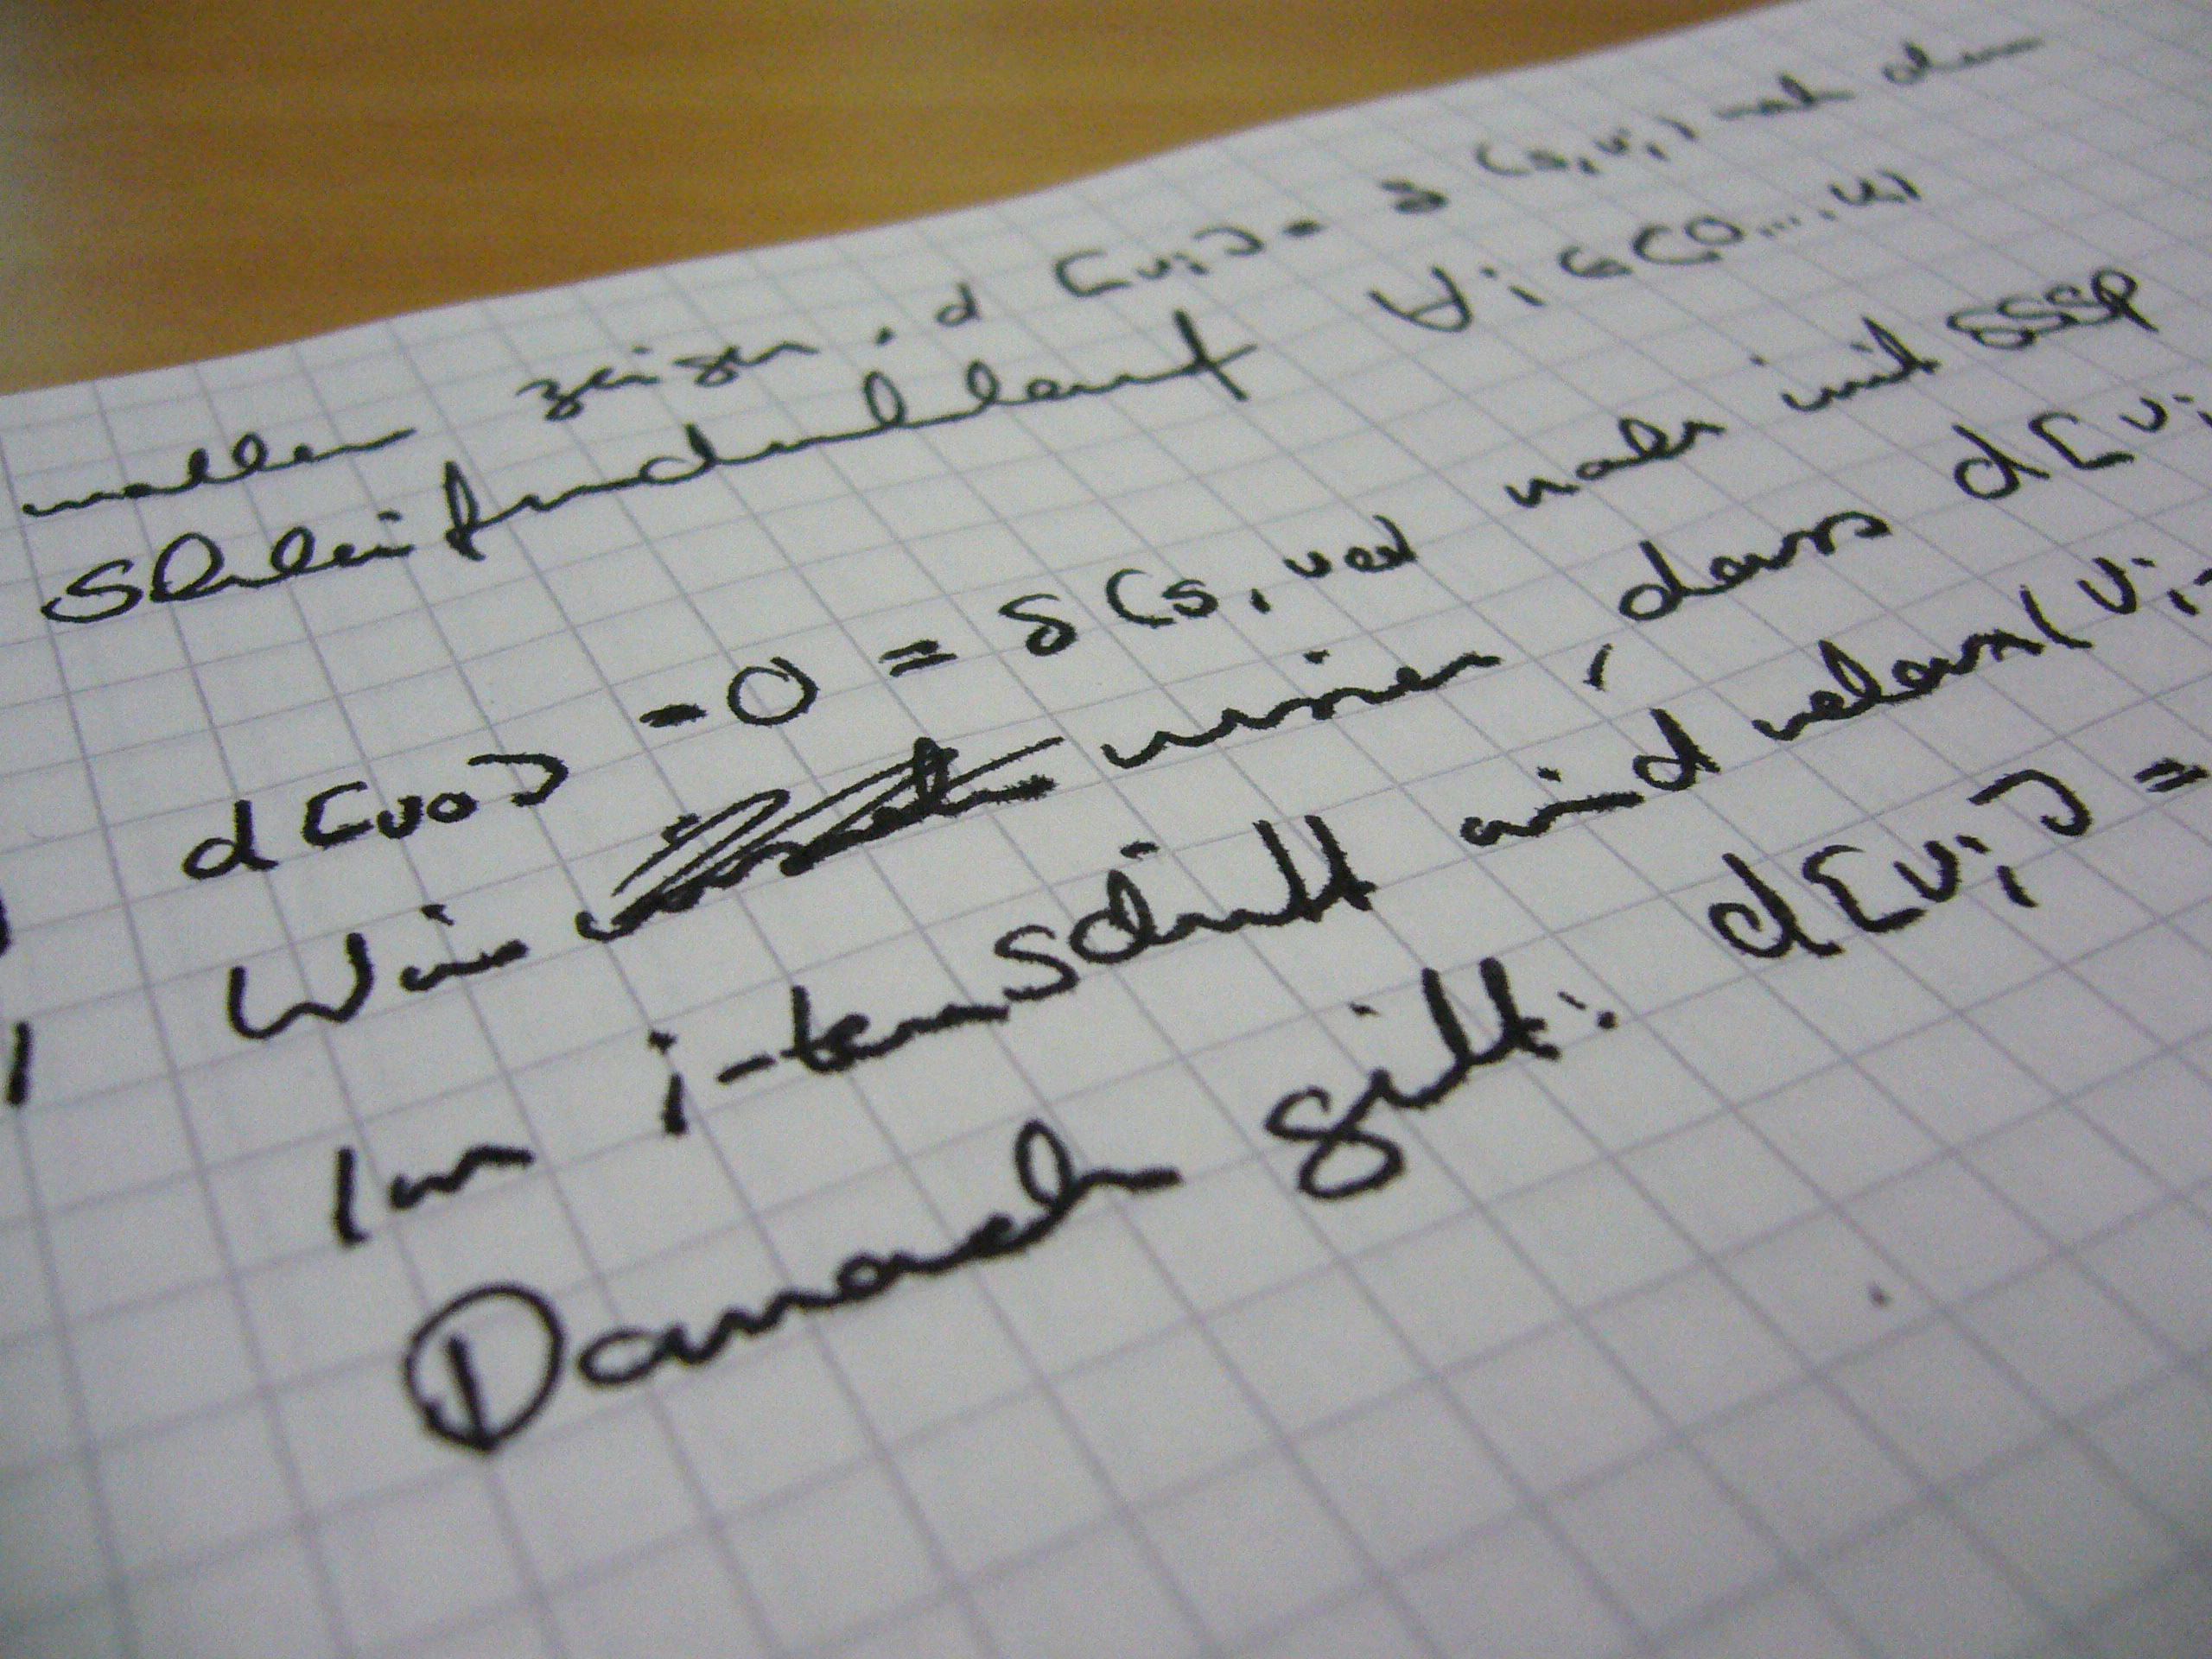 wollen zeigen, d[vi] = δ(s,vi) nach dem
Schleifendurchlauf ∀i∈(0...,k)
d[v0] = 0 = δ(s,v0) nach init SSSP
Wir wissen, dass d[vi
Im i-ten Schritt wird relax(vi-
Danach gilt: d[vi] =